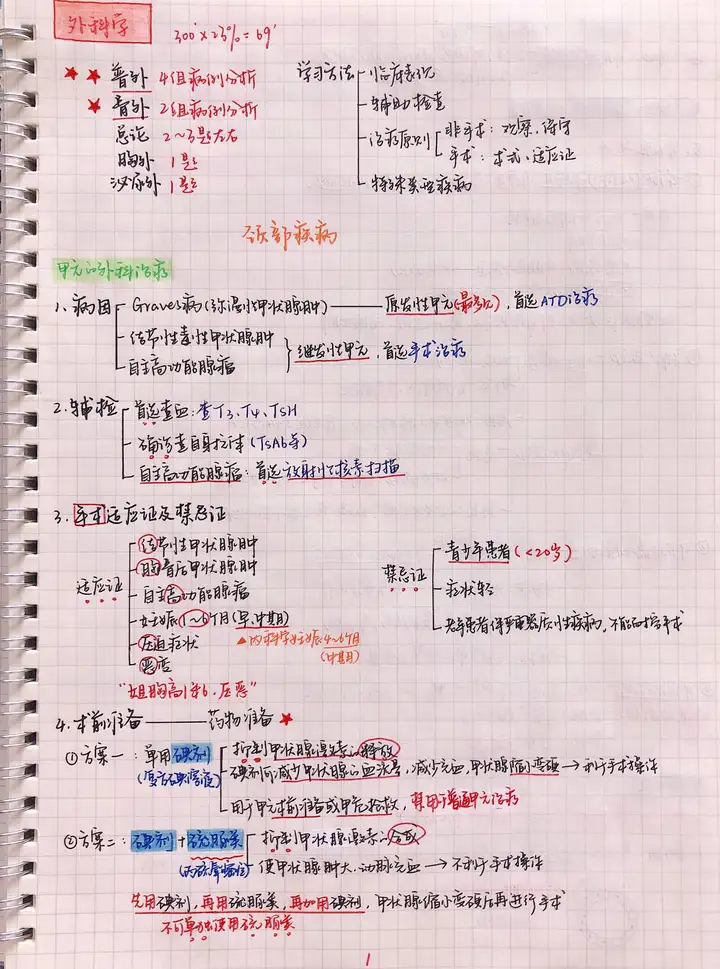 外科学 300'×23%=69'
★★ 普外 4组病例分析
★ 骨外 2组病例分析
总论 2~3题左右
胸外 1题
泌尿外 1题
学习方法 临床表现
辅助检查
治疗原则 非手术：观察，保守
手术：术式、适应证
特殊类型疾病
颈部疾病
甲亢的外科治疗
1、病因 Graves病(弥漫性甲状腺肿) 原发性甲亢(最常见)，首选ATD治疗
结节性毒性甲状腺肿
自主高功能腺瘤
继发性甲亢，首选手术治疗
2.辅检 首选查血：查T3、T4、TSH
确诊查自身抗体(TSAb等)
自主高功能腺瘤：首选放射性核素扫描
3.手术适应证及禁忌证
适应证 结节性甲状腺肿
胸骨后甲状腺肿
自主高功能腺瘤
妊娠1~6个月(早、中期)
▲内科学妊娠4~6个月
(中期)
压迫症状
恶变
"姐胸高1米6，压恶"
禁忌证 青少年患者(<20岁)
症状轻
老年患者伴严重器质性疾病，不能耐受手术
4.术前准备——药物准备 ★
①方案一：单用碘剂
(复方碘溶液)
抑制甲状腺激素的释放
碘剂可减少甲状腺的血流量，减少充血，甲状腺缩小变硬→利于手术操作
用于甲亢术前准备或甲危抢救，禁用于普通甲亢治疗
②方案二：碘剂+硫脲类
抑制甲状腺激素的合成
使甲状腺肿大、动脉充血→不利于手术操作
先用碘剂，再用硫脲类，再加用碘剂，甲状腺缩小变硬后再进行手术
不可单独使用硫脲类
1